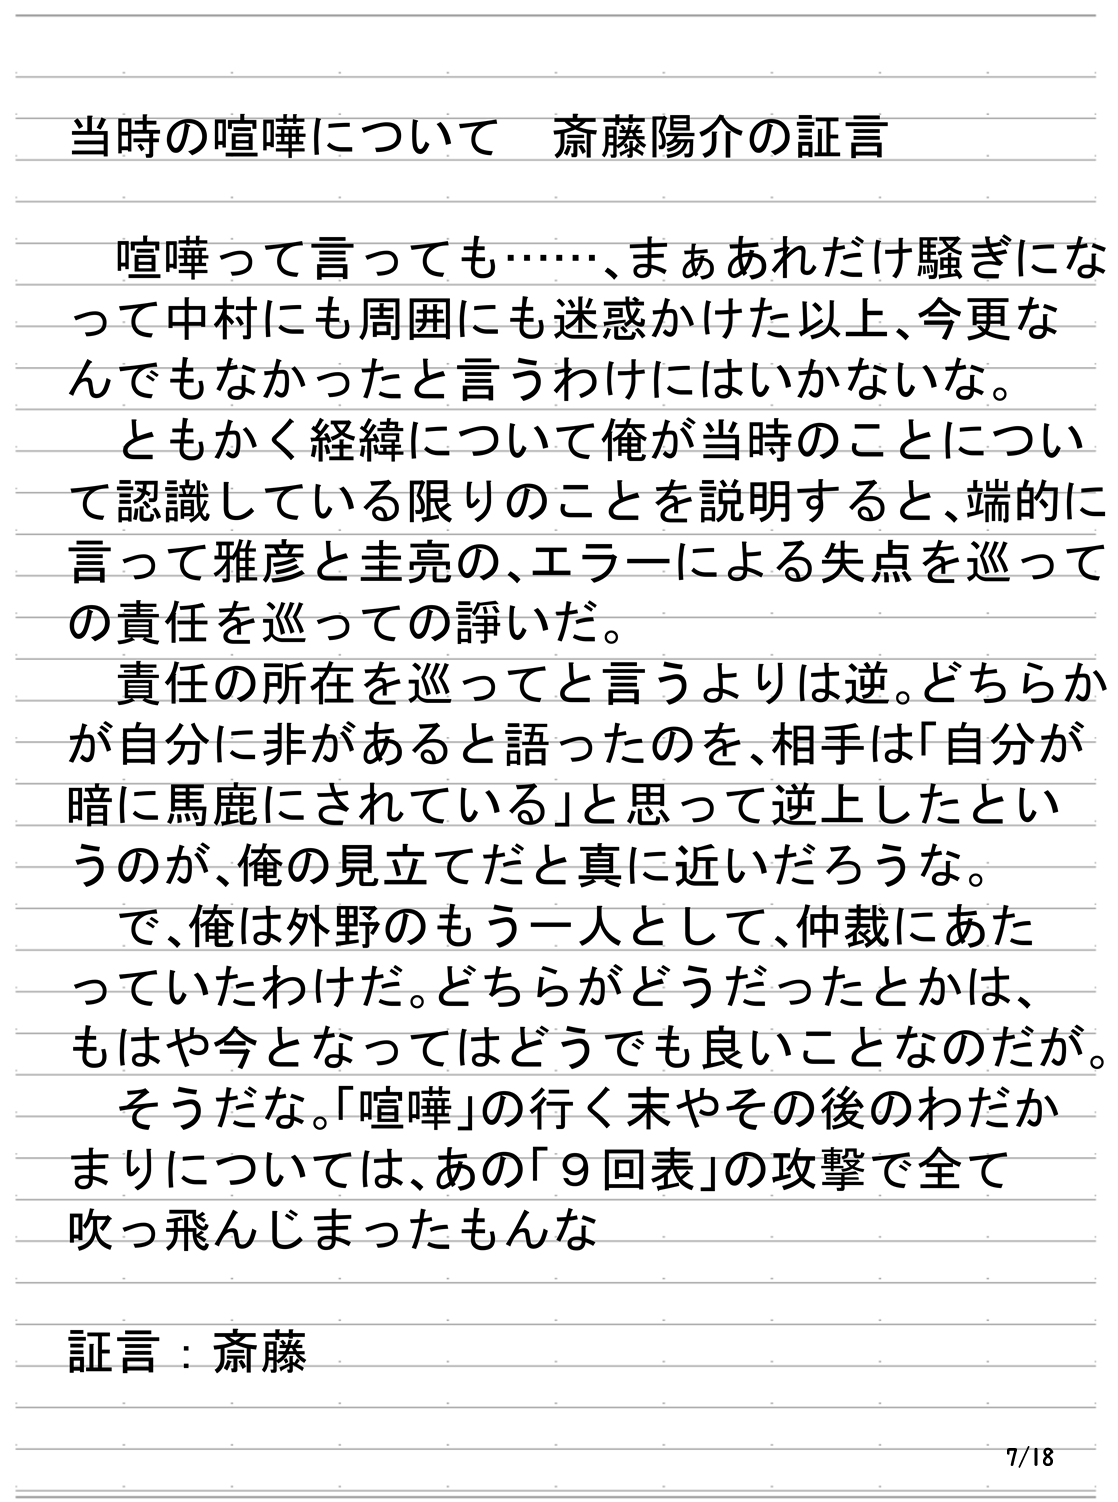 当時の喧嘩について　斎藤陽介の証言
　喧嘩って言っても……、まぁあれだけ騒ぎにな
って中村にも周囲にも迷惑かけた以上、今更な
んでもなかったと言うわけにはいかないな。
　ともかく経緯について俺が当時のことについ
て認識している限りのことを説明すると、端的に
言って雅彦と圭亮の、エラーによる失点を巡って
の責任を巡っての諍いだ。
　責任の所在を巡ってと言うよりは逆。どちらか
が自分に非があると語ったのを、相手は「自分が
暗に馬鹿にされている」と思って逆上したとい
うのが、俺の見立てだと真に近いだろうな。
　で、俺は外野のもう一人として、仲裁にあた
っていたわけだ。どちらがどうだったとかは、
もはや今となってはどうでも良いことなのだが。
　そうだな。「喧嘩」の行く末やその後のわだか
まりについては、あの「９回表」の攻撃で全て
吹っ飛んじまったもんな
証言：斎藤
7/18